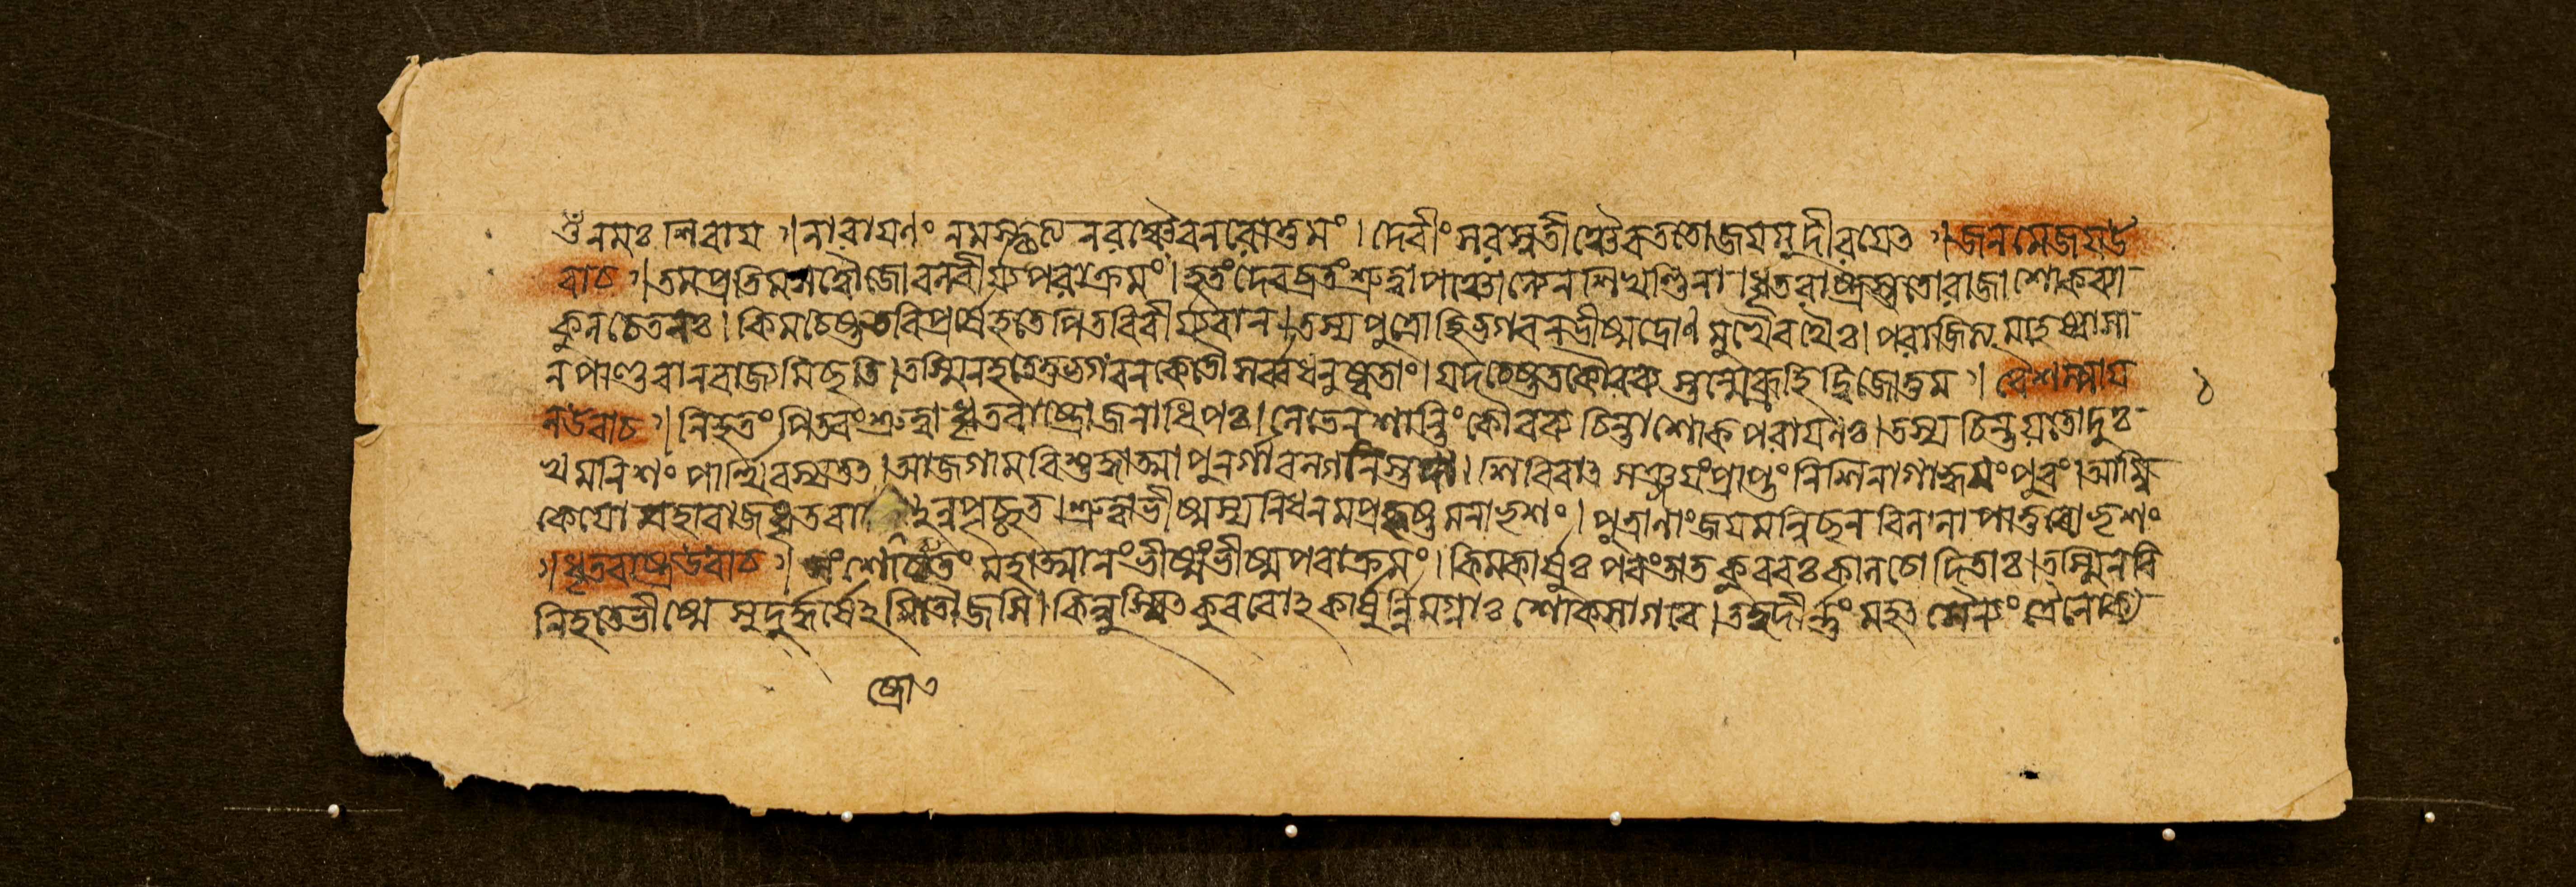 ওঁ নমঃ শিবায় ॥ নারায়ণং নমস্কৃত্য নরঞ্চৈব নরোত্তমং । দেবীং সরস্বতীঞ্চৈব ততো জয়মুদীরয়েৎ ॥ জনমেজয় উ
বাচ ॥ তমপ্রতিমসত্ত্বৌজোবলবীর্য্যপরাক্রমং । হতং দেবব্রতং শ্রুত্বা পাঞ্চাল্যেন শিখণ্ডিনা । ধৃতরাষ্ট্রস্ততো রাজা শোকব্যা
কুলচেতনঃ । কিমচেষ্টত বিপ্রর্ষে হতে পিতরি বীর্য্যবান্ । তস্য পুত্রো হি ভগবন্ ভীষ্মদ্রোণমুখৈ রথৈঃ । পরাজিত্য মহেষ্বাসা
ন্ পাণ্ডবান্ রাজ্যমিচ্ছতি । তস্মিন্ হতে তু ভগবন্ কেতৌ সর্ব্বধনুষ্মতাং । যদচেষ্টত কৌরব্যস্তন্মে ব্রূহি দ্বিজোত্তম ॥ বৈশম্পায়
১
ন উবাচ ॥ নিহতং পিতরং শ্রুত্বা ধৃতরাষ্ট্রো জনাধিপঃ । লেভে ন শান্তিং কৌরব্যশ্চিন্তাশোকপরায়ণঃ । তস্য চিন্তয়তো দুঃ
খমনিশং পার্থিবস্য তৎ । আজগাম বিশুদ্ধাত্মা পুনর্গাবল্গনিস্তদা । শিবিরাৎ সঞ্জয়ং প্রাপ্তং নিশি নাগাহ্বয়ং পুরং । আম্বি
কেয়ো মহারাজ ধৃতরা ঽন্বপৃচ্ছত । শ্রুত্বা ভীষ্মস্য নিধনমপ্রহৃষ্টমনা ভৃশং । পুত্রাণাং জয়মন্বিচ্ছন্ বিললাপাতুরো ভৃশং
॥ ধৃতরাষ্ট্র উবাচ ॥ মহাত্মানং ভীষ্মং ভীষ্মপরাক্রমং । কিমকার্ষুঃ পরং তাত কুরবঃ কালচোদিতাঃ । তস্মিন্ বি
নিহতে ভীষ্মে সুদুর্দ্ধর্ষেঽমিতৌজসি । কিন্নুস্বিৎ কুরবোঽকার্ষুর্নিমগ্নাঃ শোকসাগরে । তদুদীর্ণং মহৎ সৈন্যং ত্রৈলোক্য
ষ্ট্রো